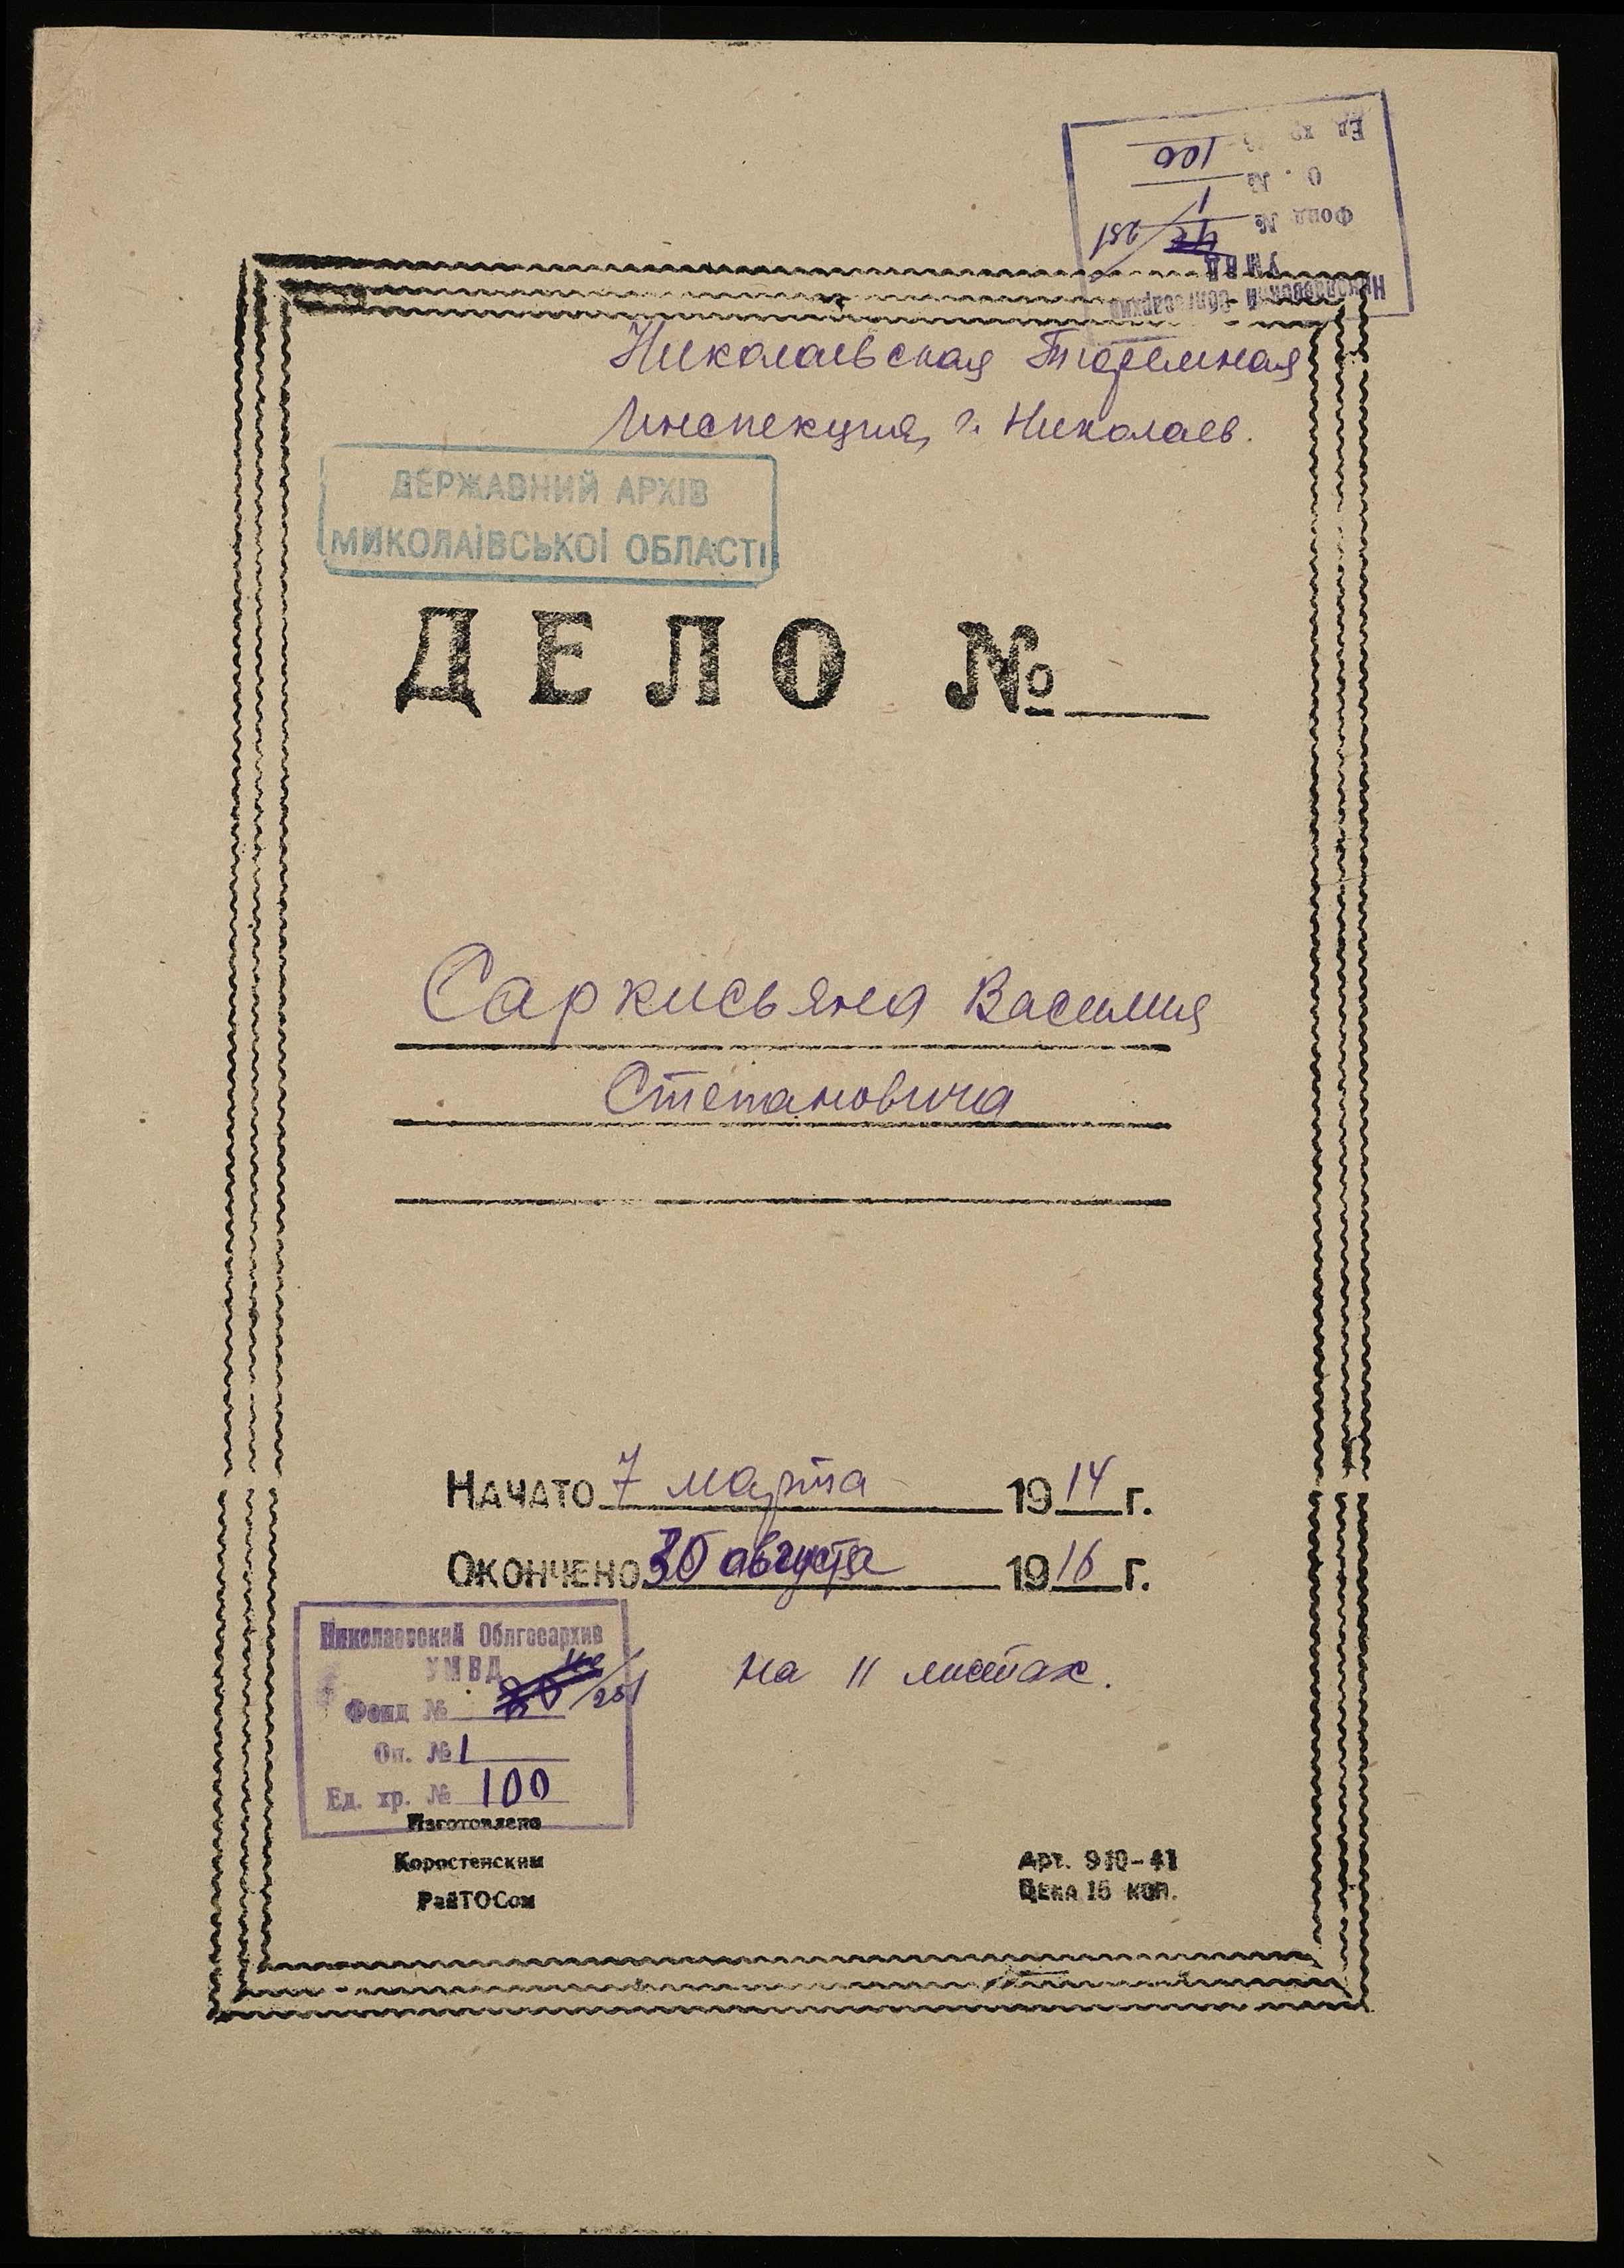 Ед. хр. № 100
О . № 1
Фонд № 251
УМВД
Николаевский Облгосархив
Николаевская Тюремная
Инспекция, г. Николаев.
ДЕРЖАВНИЙ АРХІВ
МИКОЛАЇВСЬКОЇ ОБЛАСТІ
ДЕЛО №
Саркисьяна Василия
Степановича
НАЧАТО 7 марта 1914 г.
ОКОНЧЕНО 30 августа 1916 г.
Николаевский Облгосархив
УМВД
Фонд № 251
Оп. № 1
Ед. хр. № 100
на 11 листах.
Изготовлено
Коростенским
РайТОСом
Арт. 910-41
ЦЕНА 15 КОП.